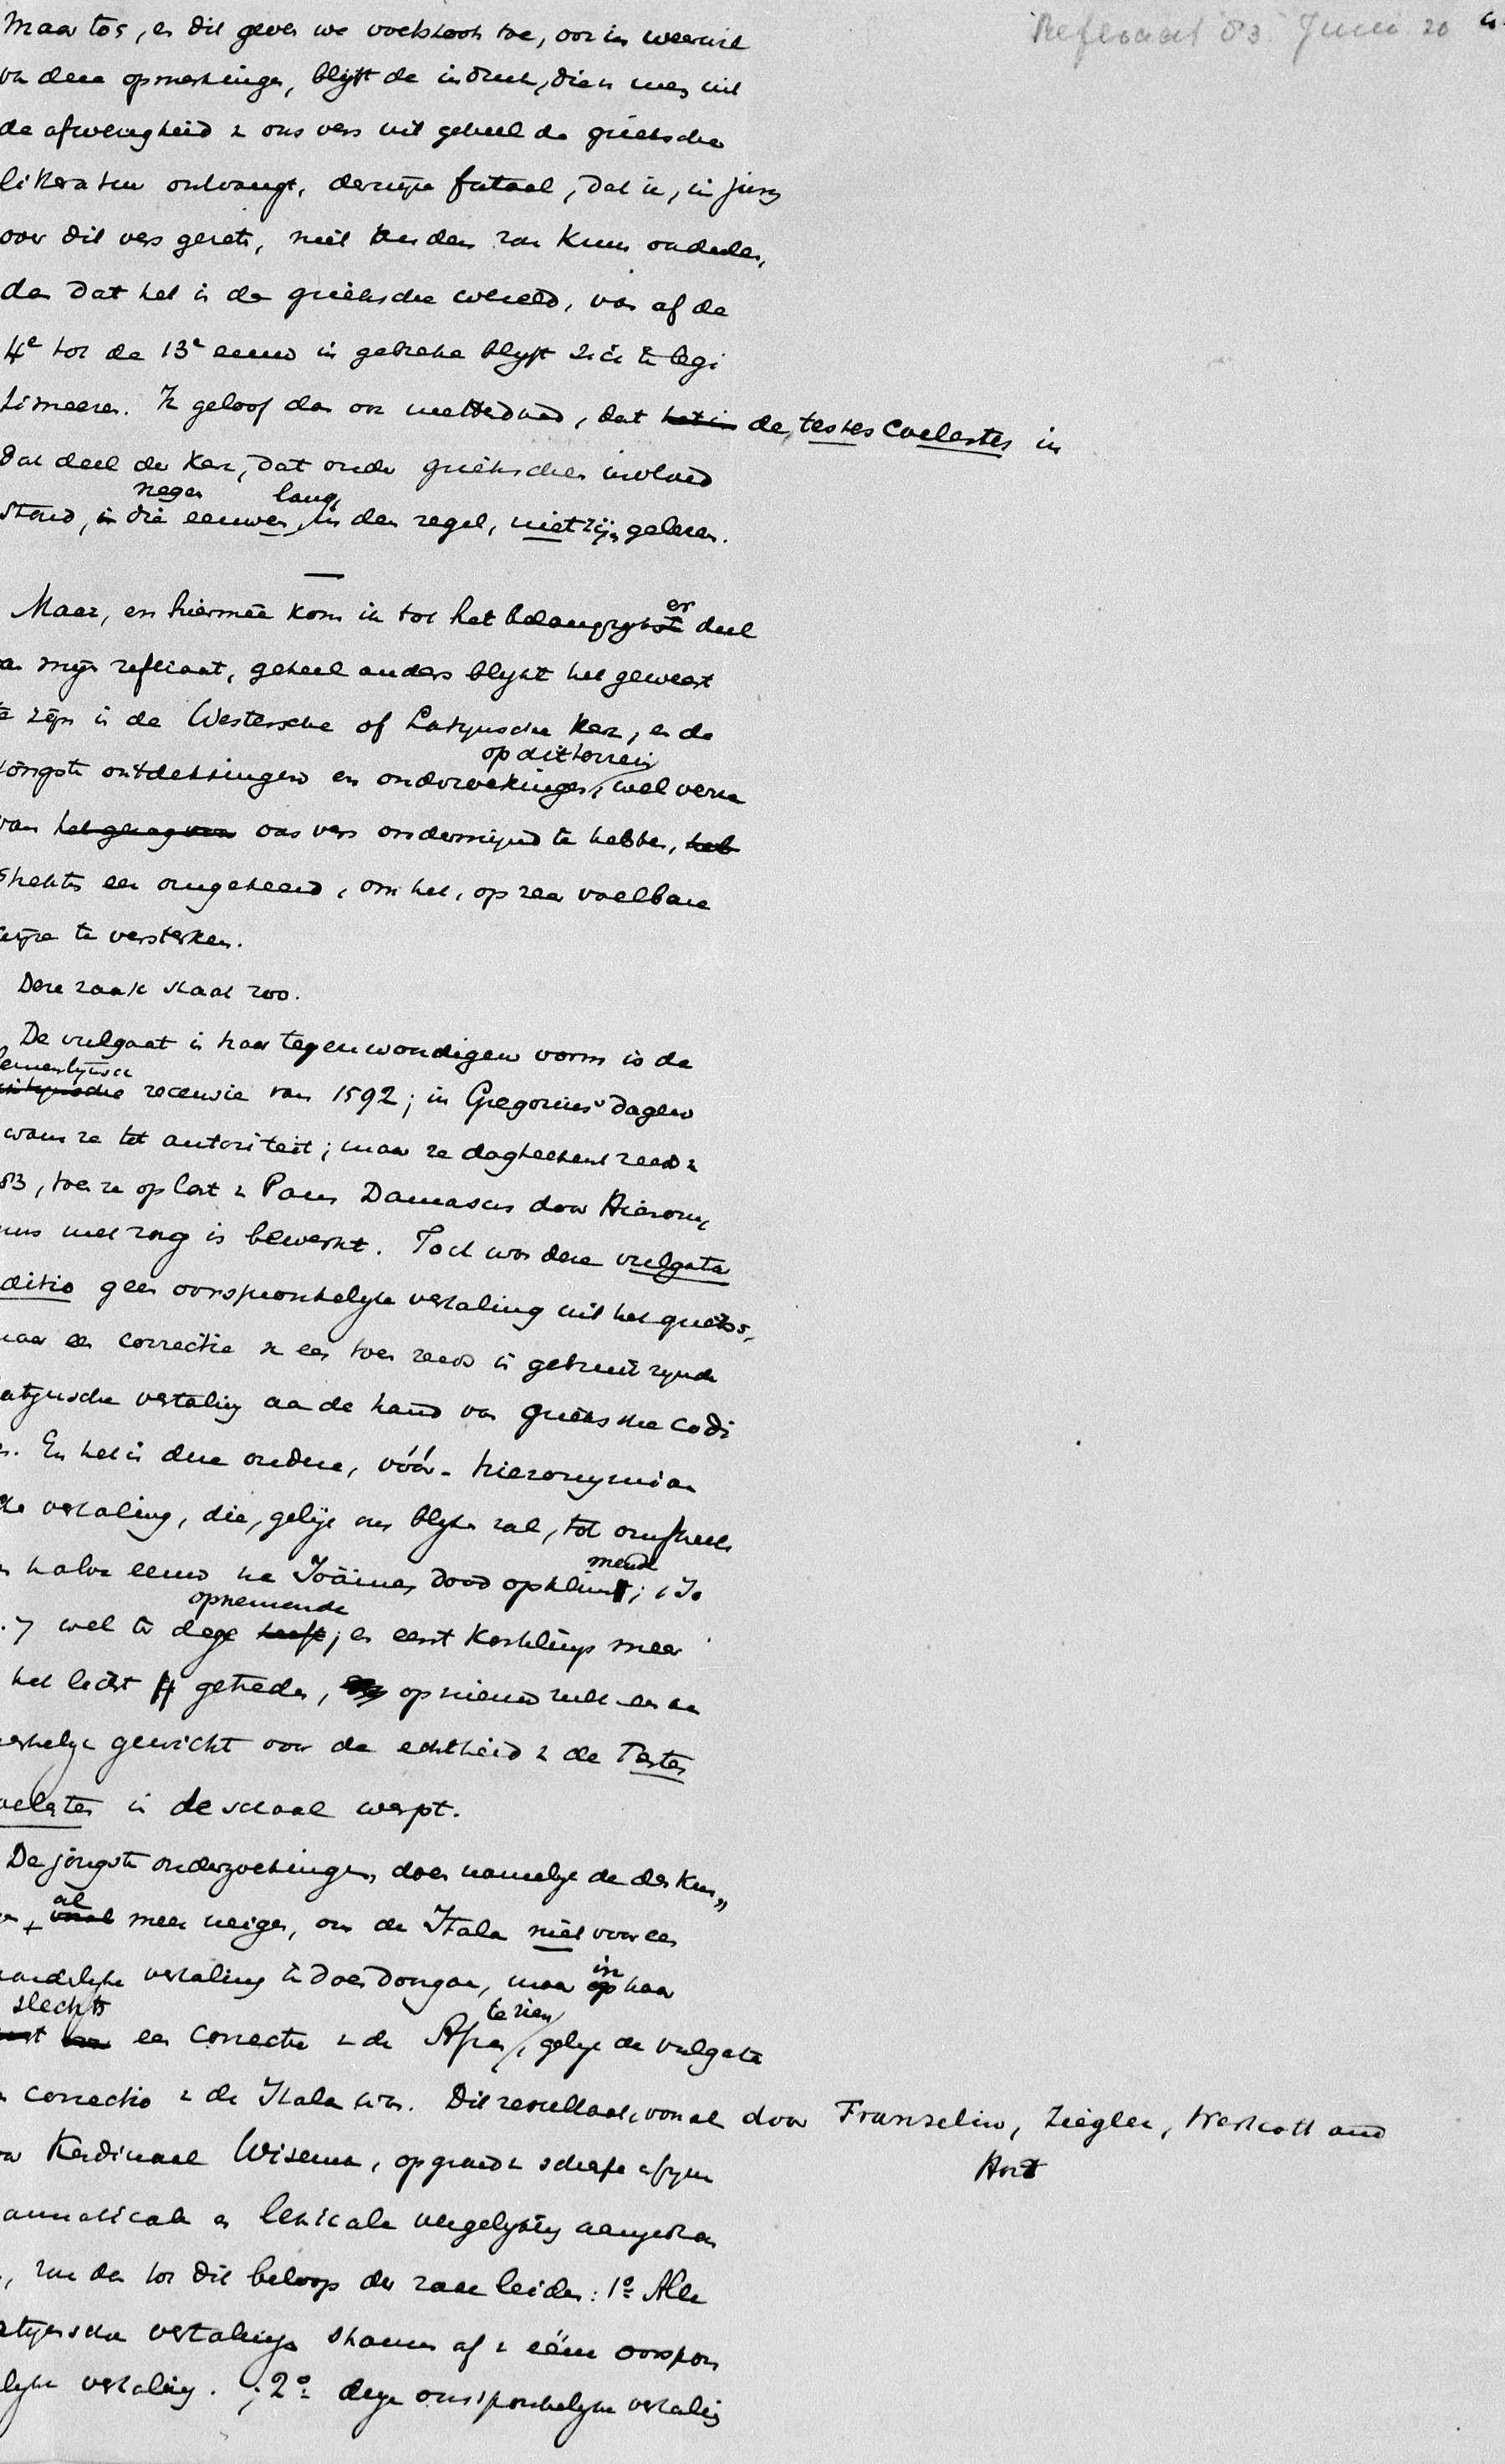 Referaat 83. Juni 20
Maar tos, en dit geven we volstrekt toe, ook in weerwil
van deze opmerkingen, blijft de indruk, dien men uit
de afwezigheid v ons vers uit geheel de grieksche
literatuur ontvangt, derwijze fataal, dat ik, in jury
over dit vers gezeten, niet anders zou kunnen oordeelen,
dan dat het in de grieksche wereld, van af de
4e tot de 13e eeuw in gebreke blijft zich te legi
timeeren. Ik geloof dan ook metterdaad, dat het in de testes coelestes in
dat deel der Kerk, dat onder griekschen invloed
stond, in die negen eeuwen lang, in den regel, niet zijn gelezen.
Maar, en hiermeê kom ik tot het belangrijkster deel
van mijn referaat, geheel anders blijkt het geweest
te zijn in de Westersche of Latijnsche Kerk, en de
jongste ontdekkingen en onderzoekingen op dit terrein, wel verre
van het gezag van ons vers ondermijnd te hebben, heb
strekten een omgekeerd, om het, op zeer voelbare
wijze te versterken.
Deze zaak staat zoo.
De vulgaat in haar tegenwoordigen vorm is de
Clementijnsche recensie van 1592; in Gregorius' dagen
kwam ze tot autoriteit; maar ze dagteekent reeds v
383, toen ze op last v Paus Damasus door Hierony
mus met zorg is bewerkt. Toch was deze vulgata
editio geen oorspronkelijke vertaling uit het grieksch,
maar een correctie v een toen reeds in gebruik zijnde
latijnsche vertaling aan de hand van grieksche codi
ces. En het is deze oudere, vóór-hieronymiaan
sche vertaling, die, gelijk ons blijken zal, tot omstreeks
een halve eeuw na Joännes dood opklimmende; 1 Jo
. 7 wel te dege opnemende heeft; en eerst kortelings meer
het licht getreden, opnieuw zulk een aan
merkelijk gewicht voor de echtheid v de Testes
coelestes in de schaal werpt.
De jongste onderzoekingen, doen namelijk de des kun„
al meer neigen, om de Itala niet voor een
vertaling te doen doorgaan, maar in op haar
slechts een correctie v de Afra te zien, gelijk de vulgata
een correctio v de Itala was. Dit resultaat, vooral door Franzelin, Ziegler, Westcott and
Hort
Kardinaal Wiseman, op grond v scherpe en fijne
grammaticale en lexicale vergelijking aangenomen
, zou dan tot dit beloop der zaak leiden: 1o Alle
latijnsche vertalingen stammen af v ééne oorspron
kelijke vertaling. ; 2o deze oorspronkelijke vertaling